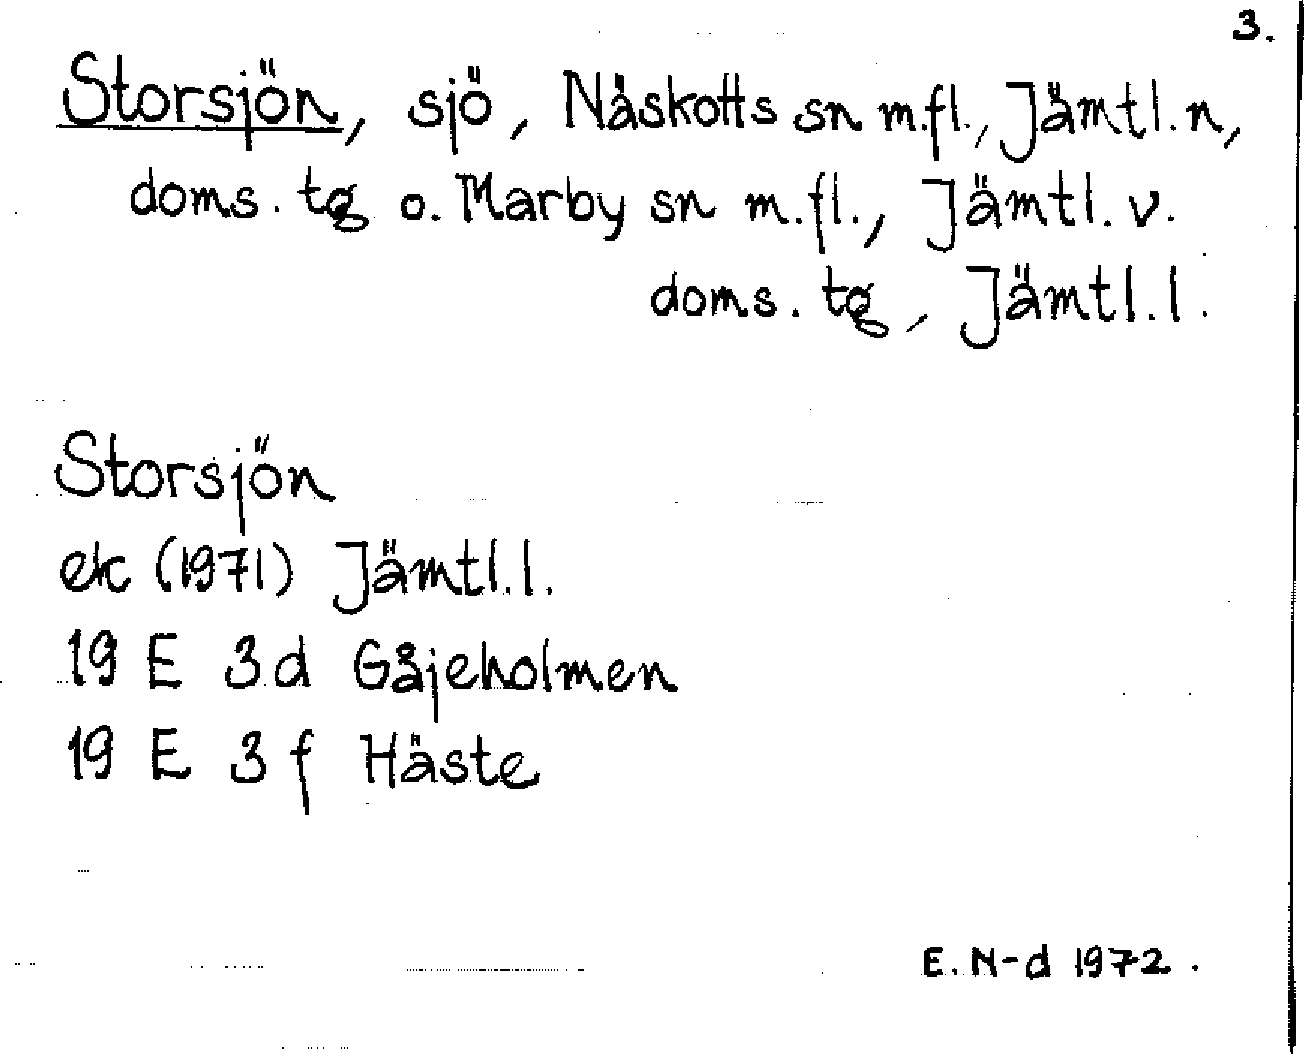 3.
Storsjön, sjö, Näskotts sn m.fl., Jämtl. n,
doms. tg o. Marby sn m.fl., Jämtl. v.
doms. tg, Jämtl. l.
Storsjön
ek (1971) Jämtl. l.
19 E 3 d Gåjeholmen
19 E 3 f Häste
E. N-d 1972.